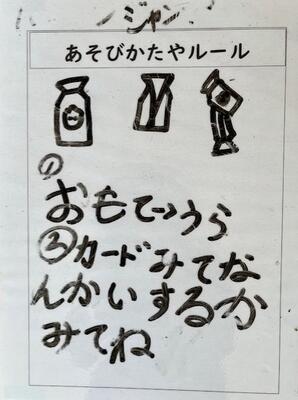 ジャン
あそびかたやルール
の
おもて→うら
③カードみてな
んかいするか
みてね